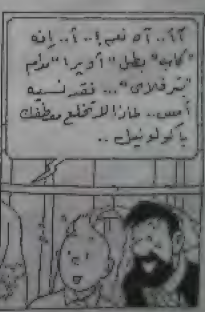 آ.. آه نعم!.. أ.. إنه
"كاب" بطل "أوبرا" مدام
"بترفلاي"... فقد نسيه
أمس.. لماذا لا تخلع معطفك
يا كولونيل..